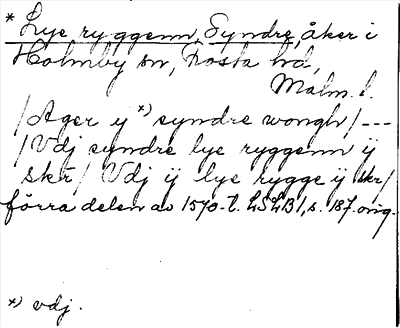 * Lye ryggenn, Syndre, åker i
Holmby sn, Frosta hd,
Malm. l.
/Ager ij *) syndre wongh/ ---
/Vdj syndre lye ryggenn ij
skr/ Vdj ij lye rygge ij skr/
förra delen av 1570-t. LSLB1, s. 187. orig.
*) vdj.